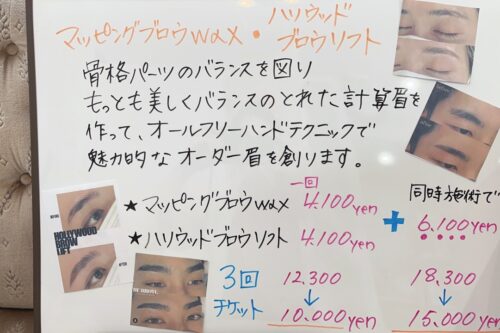 マッピングブロウwax・ハリウッド
ブロウリフト
骨格パーツのバランスを図り
もっとも美しくバランスのとれた計算眉を
作って、オールフリーハンドテクニックで
魅力的なオーダー眉を創ります。
一回
同時施術で
★マッピングブロウwax 4.100yen
+ 6.100yen
★ハリウッドブロウリフト 4.100yen
HOLLYWOOD
BROW
LIFT
3回
チケット
12,300
↓
10.000yen
18,300
↓
15.000yen